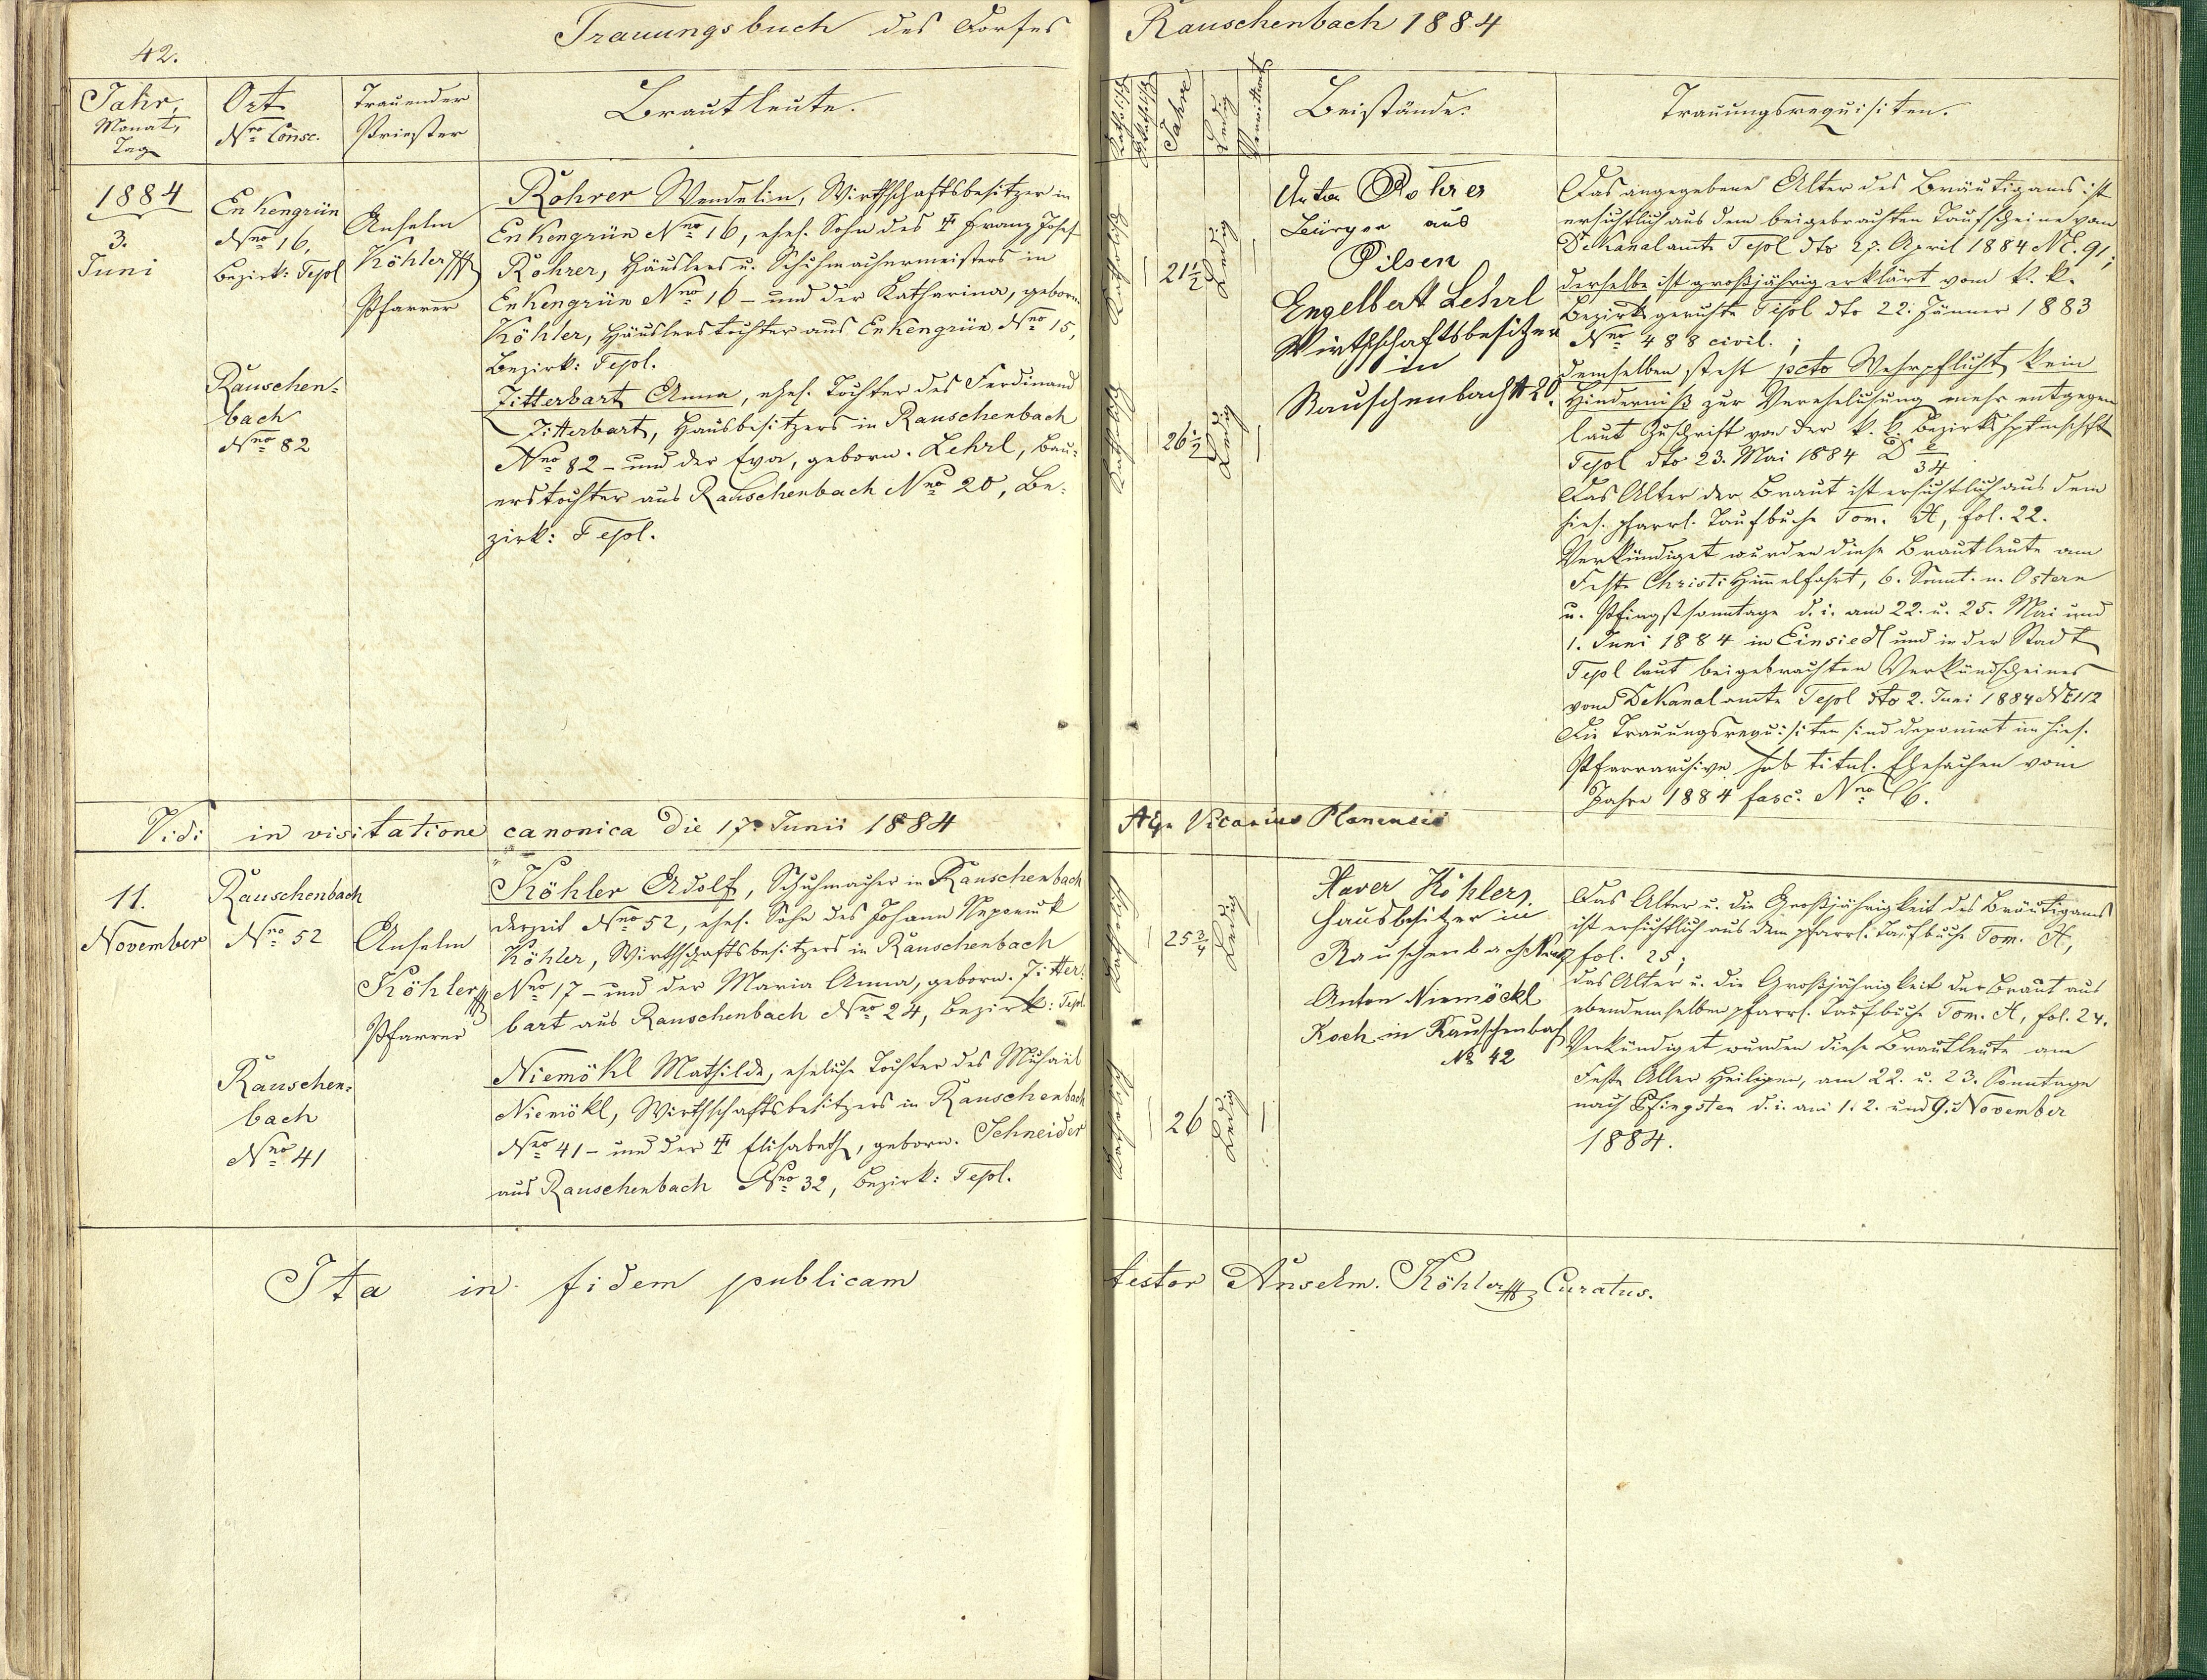 42.
Trauungsbuch des Dorfes Rauschenbach 1884
Jahr, Monat, Tag
Ort Nro Consc.
Trauender Priester
Brautleute.
Katholisch
Jahre
Ledig
Verwittwet
Beistände.
Trauungsrequisiten.
1884
3.
Juni
Enkengrün
Nro 16,
Bezirk: Tepl
Rauschen-
bach
Nro 82
Anselm
Köhler
Pfarrer
Rohrer Wendelin, Wirthschaftsbesitzer in
Enkengrün Nro 16, ehel. Sohn des ✝ Franz Josef
Rohrer, Häuslers u. Schuhmachermeisters in
Enkengrün Nro 16 – und der Katharina, geborn.
Köhler, Häuslerstochter aus Enkengrün Nro 15,
Bezirk: Tepl.
Zitterbart Anna, ehel. Tochter des Ferdinand
Zitterbart, Hausbesitzers in Rauschenbach
Nro 82 – und der Eva, geborn. Lehrl, Bau-
erstochter aus Rauschenbach Nro 20, Be-
zirk: Tepl.
Katholisch
21½
Ledig
Katholisch
26½
Ledig
Anton Rohrer
Bürger aus
Pilsen
Engelbert Lehrl
Wirthschaftsbesitzer
in
Rauschenbach N 20.
Das angegebene Alter des Bräutigams ist
ersichtlich aus dem beigebrachten Taufscheine vom
Dekanalamte Tepl dto 27. April 1884 NE. 91;
derselbe ist großjährig erklärt vom k. k.
Bezirksgerichte Tepl dto 22. Jänner 1883
Nro 488 civil. ;
demselben steht pcto Wehrpflicht kein
Hinderniß zur Verehelichung mehr entgegen
laut Zuschrift von der k. k. Bezirkshptmschft
Tepl dto 23. Mai 1884
Das Alter der Braut ist ersichtlich aus dem
hies. pfarrl. Taufbuche Tom. A, fol. 22.
Verkündiget wurden diese Brautleute am
Feste Christi Himelfahrt, 6. Sonnt. n. Ostern
u. Pfingstsonntage d. i. am 22. u. 25. Mai und
1. Juni 1884 in Einsiedl und in der Stadt
Tepl laut beigebrachten Verkündscheines
vom Dekanalamte Tepl dto 2. Juni 1884 NE 112
Die Trauungsrequisiten sind deponirt im hies.
Pfarrarchive sub titul. Ehesachen vom
Jahre 1884 fasc. Nro 6.
Vidi in visitatione canonica die 17. Junii 1884 Vicarius Planensis
11.
November
Rauschenbach
Nro 52
Rauschen-
bach
Nro 41
Anselm
Köhler
Pfarrer
Köhler Adolf, Schuhmacher in Rauschenbach
derzeit Nro 52, ehel. Sohn des Johann Nepomuk
Köhler, Wirthschaftsbesitzers in Rauschenbach
Nro 17 – und der Maria Anna, geborn. Zitter-
bart aus Rauschenbach Nro 24, Bezirk: Tepl
Niemökl Mathilde, eheliche Tochter des Michael
Niemökl, Wirthschaftsbesitzers in Rauschenbach
Nro 41 – und der ✝ Elisabeth, geborn. Schneider
aus Rauschenbach Nro 32, Bezirk: Tepl.
Katholisch
25¾
Ledig
Katholisch
26
Ledig
Xaver Köhler,
Hausbesitzer in
Rauschenbach
Anton Niemöckl
Koch in Rauschenbach
No 42
Das Alter u. die Großjährigkeit des Bräutigams
ist ersichtlich aus dem pfarrl. Taufbuche Tom. A,
fol. 25;
das Alter u. die Großjährigkeit der Braut aus
ebendemselben pfarrl. Taufbuche Tom. A, fol. 24.
Verkündiget wurden diese Brautleute am
Feste Aller Heiligen, am 22. u. 23. Sonntage
nach Pfingsten d. i. am 1. 2. und 9. November
1884.
Ita in fidem publicam testor Anselm. Köhler Curatus.